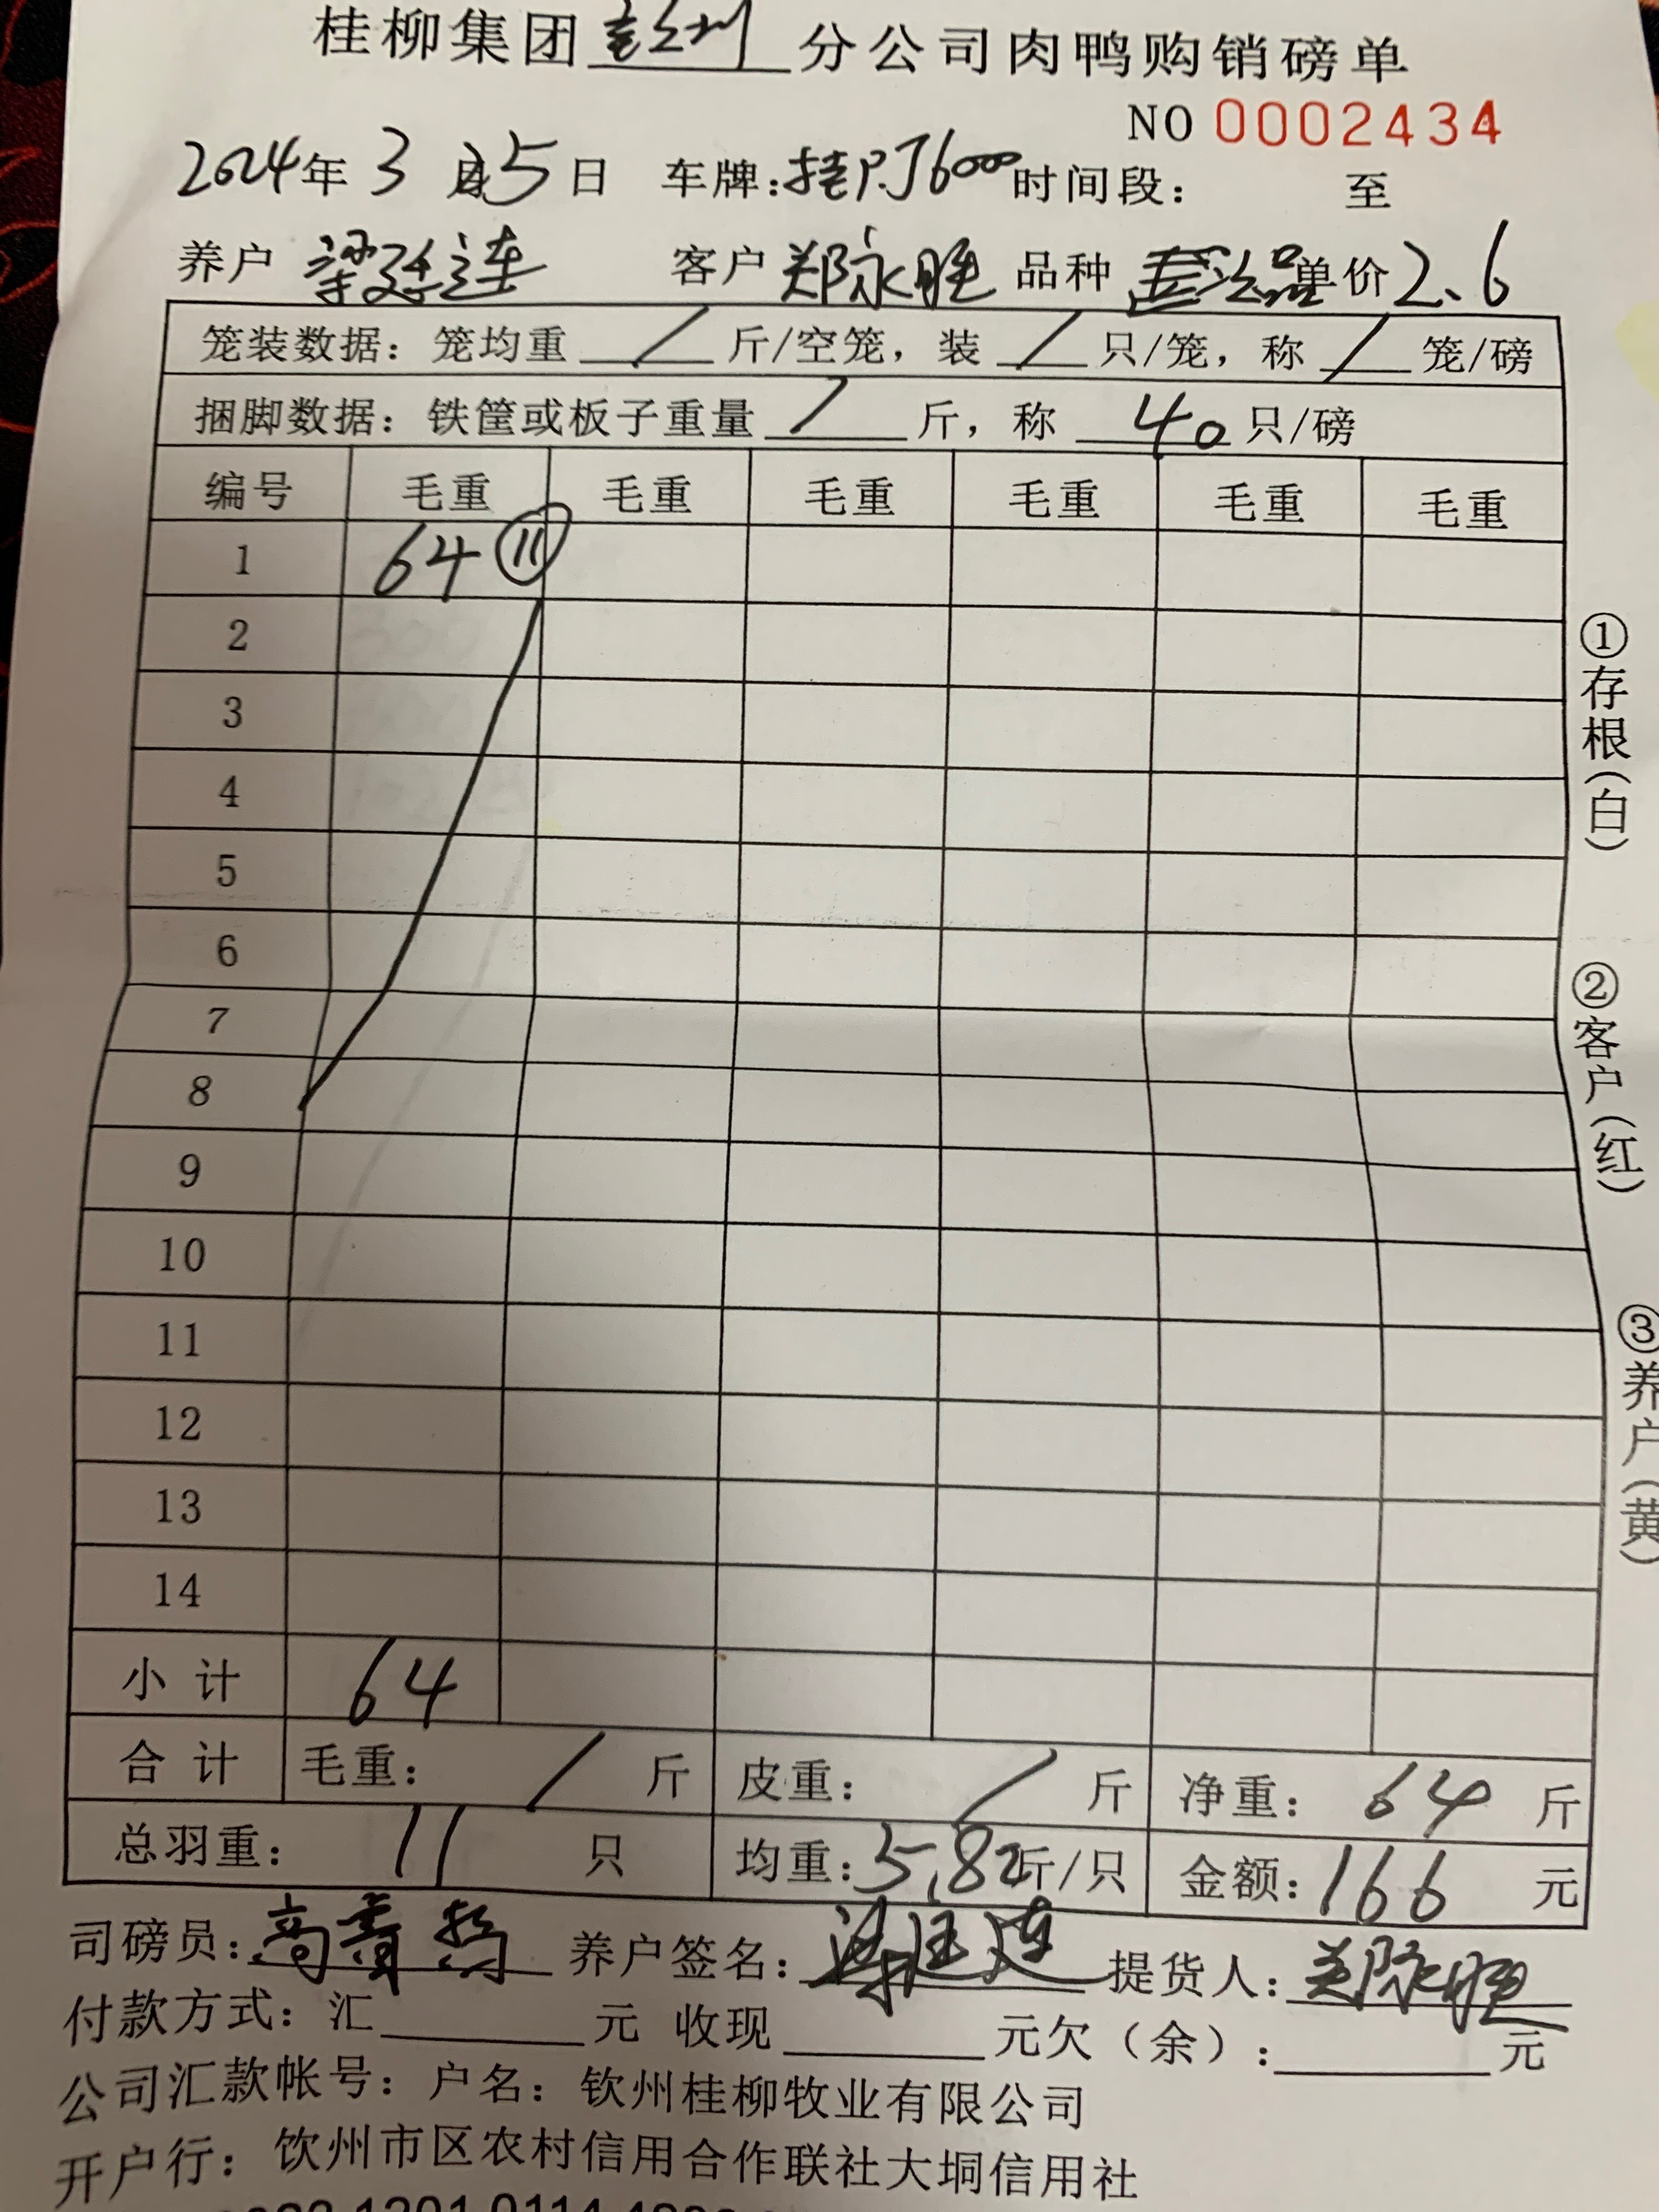 桂柳集团 分公司肉鸭购销磅单
NO 0002434
2024年 3 月5日 车牌:桂PJ6000时间段: 至
养户 梁廷连 客户 郑永胜 品种 单价2.6
笼装数据: 笼均重 / 斤/空笼, 装 / 只/笼, 称 / 笼/磅
捆脚数据: 铁筐或板子重量 / 斤, 称 40 只/磅
编号 毛重 毛重 毛重 毛重 毛重 毛重
1 64 ⑪
2
3
4
5
6
7
8
9
10
11
12
13
14
小 计 64
合 计 毛重: / 斤 皮重: / 斤 净重: 64 斤
总羽重: 11 只 均重:5.82斤/只 金额:166 元
①存根(白)
②客户(红)
③养户(黄)
司磅员: 养户签名:梁廷连 提货人:郑永胜
付款方式: 汇 元 收现 元欠(余): 元
公司汇款帐号: 户名: 钦州桂柳牧业有限公司
开户行: 饮州市区农村信用合作联社大垌信用社